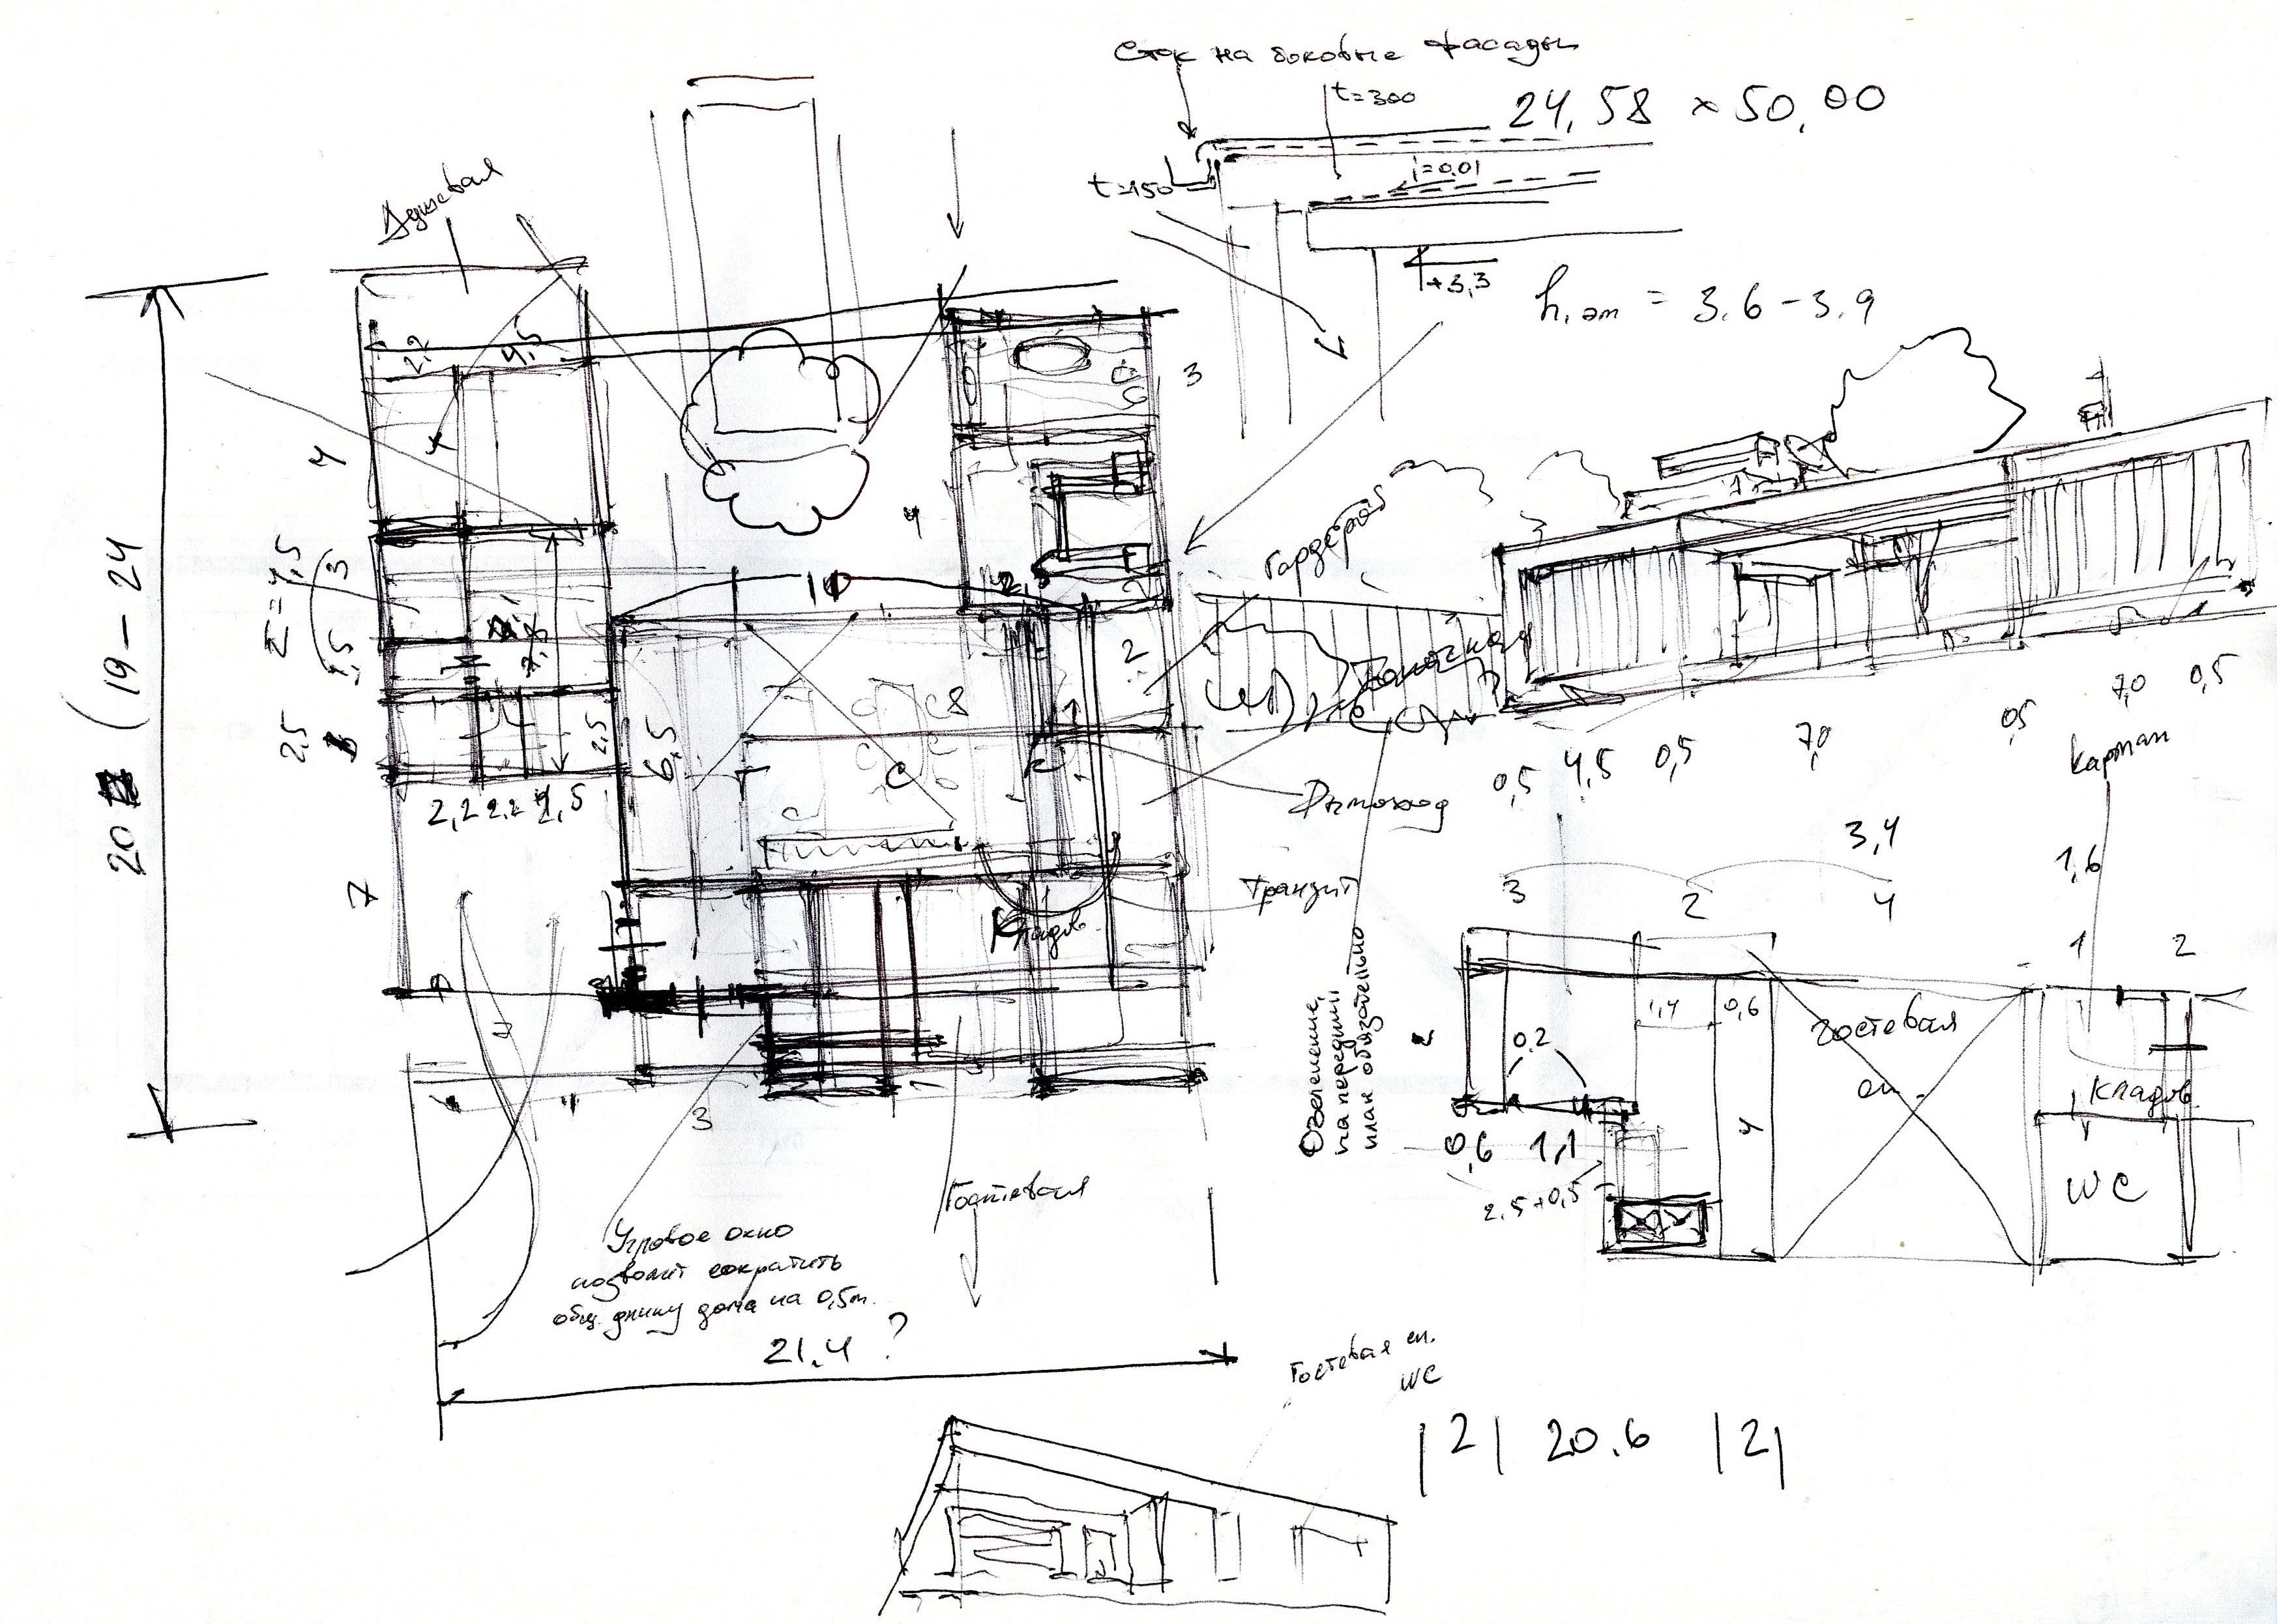 Сток на боковые фасады
t=300
24,58 × 50,00
t=150
i=0,01
+3,3
h.эт = 3.6 – 3.9
Душевая
2,2
4,5
3
4
4
20 (19 – 24
Σ=4,5
3
1,5
2,5
10
2
6,5
2,5
2,2 2.2 4,5
7
Гардероб
Дымоход
Транзит
Кладов.
Озеленение,
на передний
план обязательно
0,5 4,5 0,5 7,0 0,5 7,0 0,5
Карман
3,4
1,6
3 2 4 1 2
1,4 0,6
0,2
Гостевая
сп.
Кладов.
4
WC
0,6 1,1
2.5+0,5
4
3
Гостевая
Угловое окно
позволит сократить
общ. длину дома на 0,5м.
21.4 ?
Гостевая сп.
WC
|2| 20.6 |2|